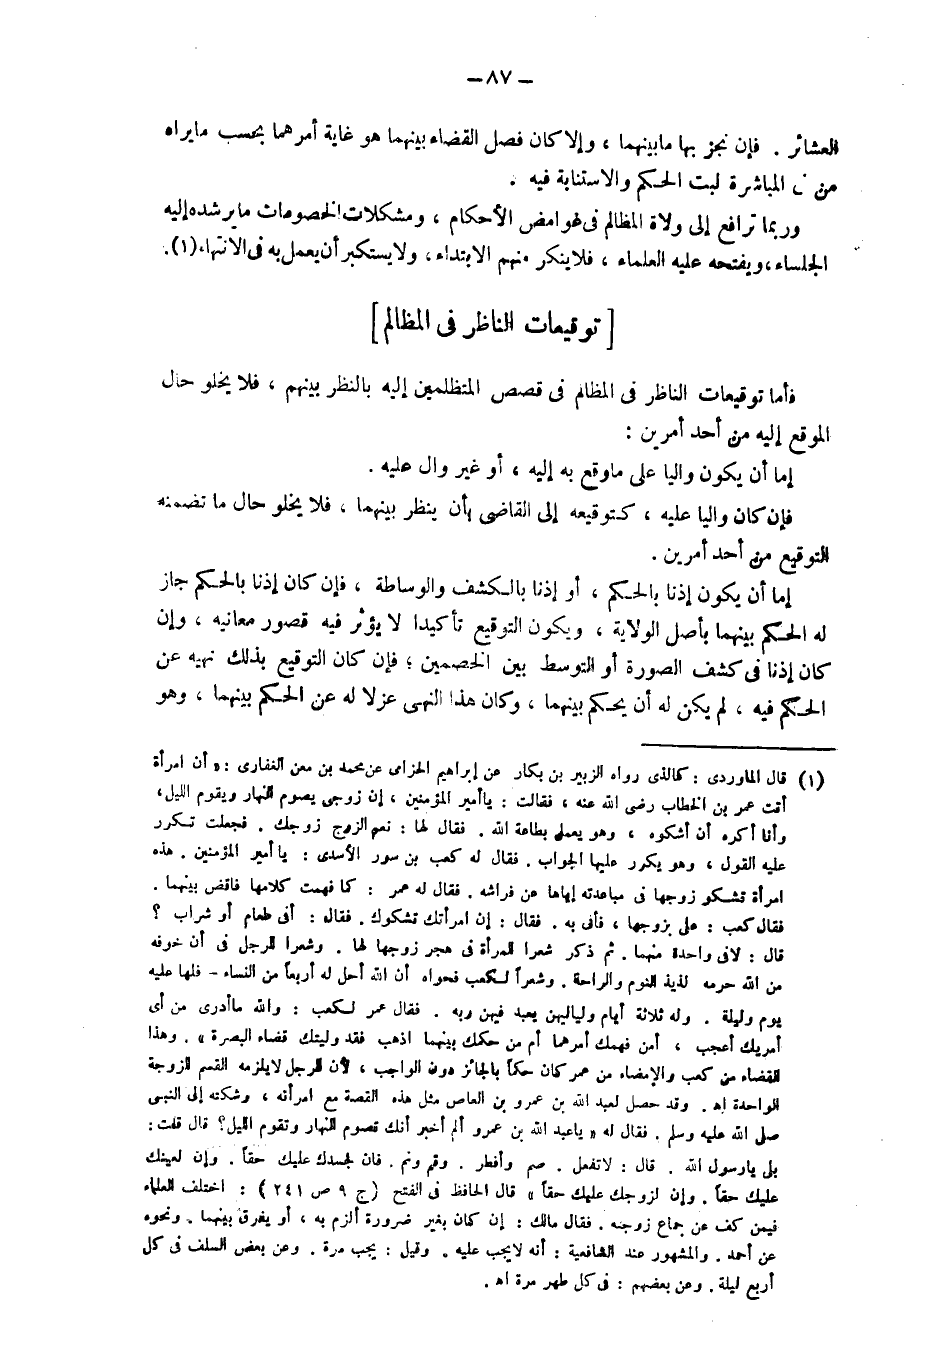 — ٨٧ —
العشائر . فإن نجز بها مابينهما ، وإلا كان فصل القضاء بينهما هو غاية أمرهما بحسب مايراه
من المباشرة لبت الحكم والاستنابة فيه .
وربما ترافع إلى ولاة المظالم فى غوامض الأحكام ، ومشكلات الخصومات مايرشده إليه
الجلساء، ويفتحه عليه العلماء ، فلاينكر منهم الابتداء، ولايستكبر أن يعمل به فى الانتهاء(١).
[ توقيعات الناظر فى المظالم ]
فأما توقيعات الناظر فى المظالم فى قصص المتظلمين إليه بالنظر بينهم ، فلا يخلو حال
الموقع إليه من أحد أمرين :
إما أن يكون واليا على ماوقع به إليه ، أو غير وال عليه .
فإن كان واليا عليه ، كتوقيعه إلى القاضى بأن ينظر بينهما ، فلا يخلو حال ما تضمنه
التوقيع من أحد أمرين .
إما أن يكون إذنا بالحكم ، أو إذنا بالكشف والوساطة ، فإن كان إذنا بالحكم جاز
له الحكم بينهما بأصل الولاية ، ويكون التوقيع تأكيدا لا يؤثر فيه قصور معانيه ، وإن
كان إذنا فى كشف الصورة أو التوسط بين الخصمين ؛ فإن كان التوقيع بذلك نهيه عن
الحكم فيه ، لم يكن له أن يحكم بينهما ، وكان هذا النهى عزلا له عن الحكم بينهما ، وهو
(١) قال الماوردى : كالذى رواه الزبير بن بكار عن إبراهيم الحزامى عن محمد بن معن الغفارى : « أن امرأة
أتت عمر بن الخطاب رضى الله عنه ، فقالت : ياأمير المؤمنين ، إن زوجى يصوم النهار ويقوم الليل،
وأنا أكره أن أشكوه ، وهو يعمل بطاعة الله . فقال لها : نعم الزوج زوجك . فجعلت تكرر
عليه القول ، وهو يكرر عليها الجواب. فقال له كعب بن سور الأسدى : يا أمير المؤمنين . هذه
امرأة تشكو زوجها فى مباعدته إياها عن فراشه . فقال له عمر : كما فهمت كلامها فاقض بينهما .
فقال كعب : على بزوجها ، فأتى به . فقال : إن امرأتك تشكوك . فقال : أفى طعام أو شراب ؟
قال : لافى واحدة منهما . ثم ذكر شعرا للمرأة فى هجر زوجها لها . وشعرا للرجل فى أن خوفه
من الله حرمه لذيذ النوم والراحة . وشعراً لكعب فحواه أن الله أحل له أربعاً من النساء - فلها عليه
يوم وليلة . وله ثلاثة أيام ولياليهن يعبد فيهن ربه . فقال عمر لكعب : والله ماأدرى من أى
أمريك أعجب ، أمن فهمك أمرهما أم من حكمك بينهما اذهب فقد وليتك قضاء البصرة » . وهذا
القضاء من كعب والإمضاء من عمر كان حكماً بالجائز دون الواجب ، لأن الرجل لايلزمه القسم الزوجة
الواحدة اه . وقد حصل لعبد الله بن عمرو بن العاص مثل هذه القصة مع امرأته ، وشكته إلى النبى
صلى الله عليه وسلم . فقال له « ياعبد الله بن عمرو ألم أخبر أنك تصوم النهار وتقوم الليل؟ قال قلت :
بلى يارسول الله . قال : لاتفعل . صم وأفطر . وقم ونم . فان لجسدك عليك حقاً . وإن لعينك
عليك حقاً . وإن لزوجك عليك حقاً » قال الحافظ فى الفتح ( ج ٩ ص ٢٤١ ) : اختلف العلماء
فيمن كف عن جماع زوجته . فقال مالك : إن كان بغير ضرورة ألزم به ، أو يفرق بينهما . ونحوه
عن أحمد . والمشهور عند الشافعية : أنه لايجب عليه . وقيل : يجب مرة . وعن بعض السلف فى كل
أربع ليلة . وعن بعضهم : فى كل طهر مرة اه .